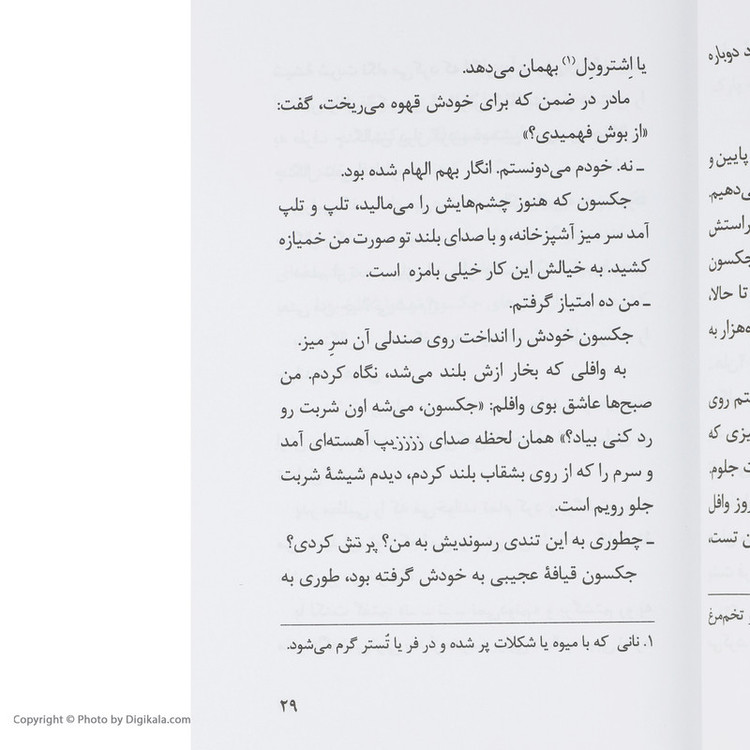 یا اِشترودِل(۱) بهمان می‌دهد.
مادر در ضمن که برای خودش قهوه می‌ریخت، گفت:
«از بوش فهمیدی؟»
ـ نه. خودم می‌دونستم. انگار بهم الهام شده بود.
جکسون که هنوز چشم‌هایش را می‌مالید، تلپ و تلپ
آمد سر میز آشپزخانه، و با صدای بلند تو صورت من خمیازه
کشید. به خیالش این کار خیلی بامزه است.
ـ من ده امتیاز گرفتم.
جکسون خودش را انداخت روی صندلی آن سرِ میز.
به وافلی که بخار ازش بلند می‌شد، نگاه کردم. من
صبح‌ها عاشق بوی وافلم: «جکسون، می‌شه اون شربت رو
رد کنی بیاد؟» همان لحظه صدای زززیپ آهسته‌ای آمد
و سرم را که از روی بشقاب بلند کردم، دیدم شیشهٔ شربت
جلو رویم است.
ـ چطوری به این تندی رسوندیش به من؟ پرتش کردی؟
جکسون قیافهٔ عجیبی به خودش گرفته بود، طوری به
۱. نانی که با میوه یا شکلات پر شده و در فر یا تُستر گرم می‌شود.
۲۹
د دوباره
پایین و
ی‌دهیم.
راستش
جکسون
تا حالا،
ه‌هزار به
ستم روی
یزی که
ت جلوم.
روز وافل
ن تست،
و تخم‌مرغ
Copyright © Photo by Digikala.com